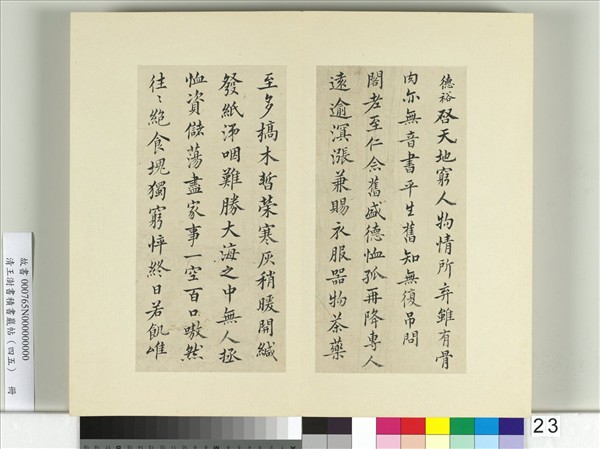 德裕啓天地窮人物情所弃雖有骨
肉亦無音書平生舊知無復吊問
閤老至仁念舊盛德恤孤再降專人
遠逾溟漲兼賜衣服器物茶藥
至多槁木暫榮寒灰稍暖開緘
發紙涕咽難勝大海之中無人拯
恤資儲蕩盡家事一空百口嗷然
往〻絕食塊獨窮悴終日若飢唯
故書 000765N000000000
清王澍書積書巖帖(四五) 冊
23